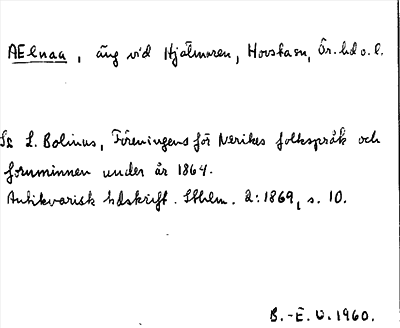 AElnaa, äng vid Hjälmaren, Hovstaen, Ör. hd o. l.
Se L. Bolinus, Föreningens för Nerikes folkspråk och
fornminnen under år 1864.
Antikvarisk tidskrift. Sthlm. 2:1869, s. 10.
B.-E. U. 1960.